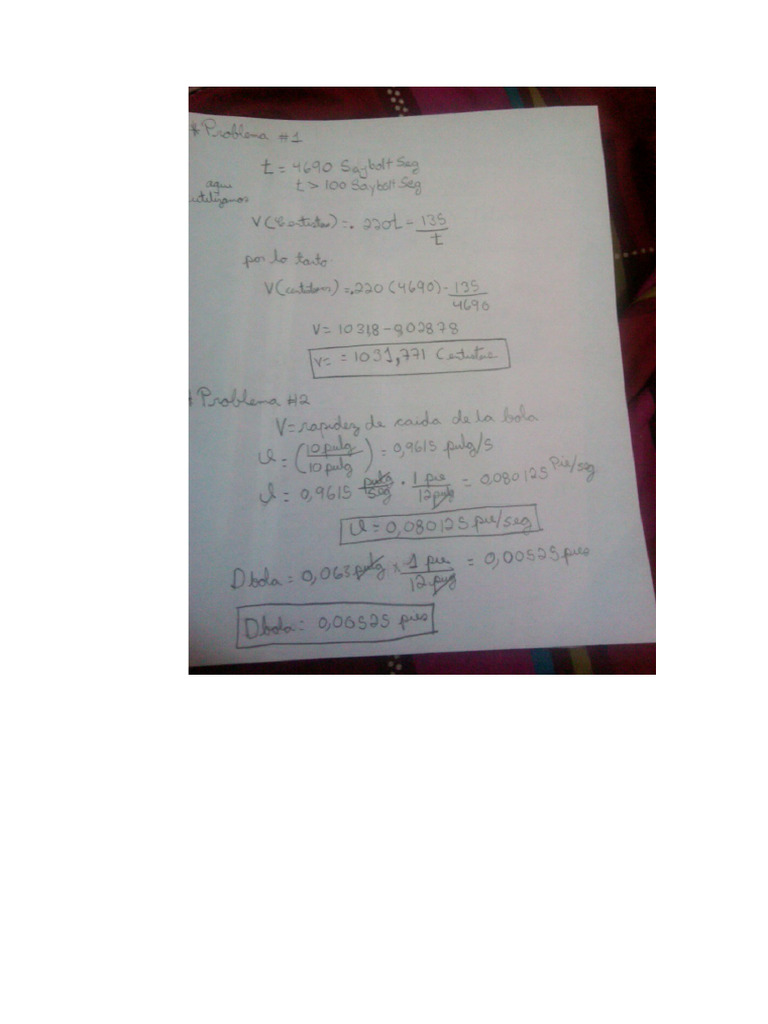 * Problema #1
t = 4690 Saybolt Seg
aqui utilizamos
t > 100 Saybolt Seg
V(Centistos) = .220t - 135/t
por lo tanto
V(centistoes) = .220(4690) - 135/4690
V = 1031,8 - 8,02878
V = = 1031,771 Centistoe
* Problema #2
V = rapidez de caida de la bola
U = (10 pulg/10 pulg) = 0,9615 pulg/s
U = 0,9615 pulg/seg · 1 pie/12 pulg = 0,080125 Pie/seg
U = 0,080125 pie/seg
D bola = 0,063 pulg x 1 pie/12 pulg = 0,00525 pies
D bola = 0,00525 pies